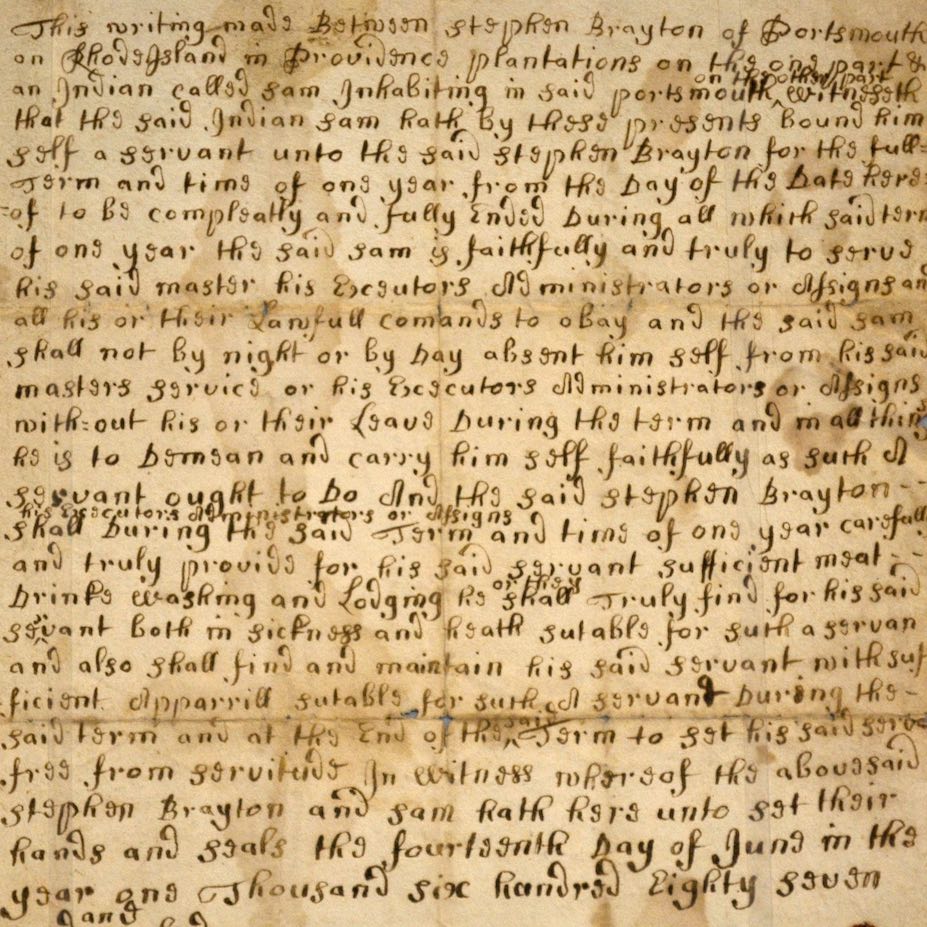 This writing made Between stephen Brayton of Portsmouth
on RhodeIsland in Providence plantations on the one part &
an Indian called sam Inhabiting in said portsmouth on the other part witneseth
that the said Indian sam hath by these presents bound him
self a servant unto the said stephen Brayton for the full=
Term and time of one year from the Day of the Date here=
=of to be compleatly and fully Ended During all which said term
of one year the said sam is faithfully and truly to serve
his said master his Executors Administrators or Assigns and
all his or their Lawfull comands to obay and the said sam
shall not by night or by Day absent him self from his said
masters service or his Excecutors Administrators or Assigns
with=out his or their Leave During the term and in all things
he is to Demean and carry him self faithfully as such A
servant ought to Do And the said stephen Brayton - -
his Excecutors Administrators or Assigns
shall During the said Term and time of one year carefull
and truly provide for his said servant sufficient meat - -
Drinke washing and Lodging he or they shall Truly find for his said
servant both in sickness and heath sutable for such a servan
and also shall find and maintain his said servant with suf
ficient Apparrill sutable for such A servant During the -
said term and at the End of the said Term to set his said serva
free from servitude In witness whereof the abovesaid
stephen Brayton and sam hath here unto set their
hands and seals the fourteenth Day of June in the
year one Thousand six hundred Eighty seven